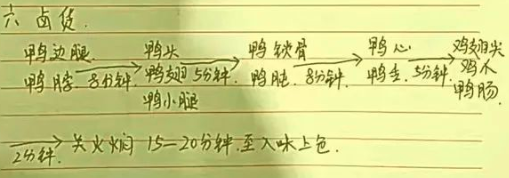 六 卤货.
鸭边腿 鸭头 鸭锁骨 鸭心 鸡翅尖
鸭脖 8分钟. 鸭翅 5分钟. 鸭肫. 8分钟. 鸭舌. 5分钟. 鸡爪
鸭小腿 鸭肠.
2分钟. 关火焖 15-20分钟.至入味上色.